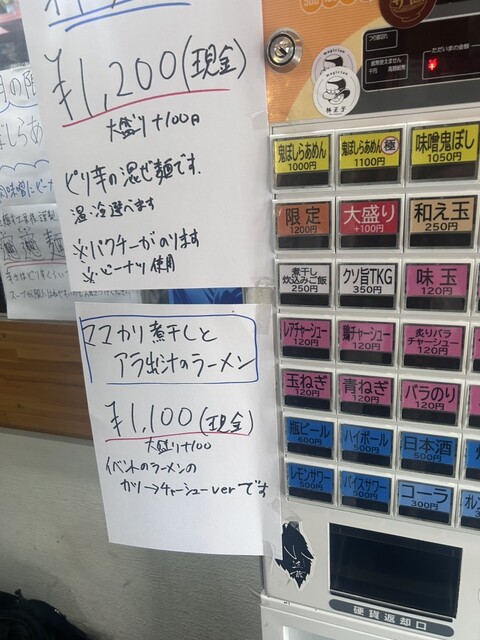 ¥1,200(現金)
大盛り+100円
ピリ辛の混ぜ麺です。
温・冷選べます
※パクチーがのります
※ピーナツ使用
ママカリ煮干しと
アラ出汁のラーメン
¥1,100(現金)
大盛り+100
イベントのラーメンの
チャーシューverです
magician
magician
ただいまの金額
鬼ぼしらあめん
1000円
鬼ぼしらあめん 極
1100円
味噌鬼ぼし
1050円
限定
1200円
大盛り
+100円
和え玉
250円
煮干し
炊込みご飯
250円
クソ旨TKG
350円
味玉
120円
レアチャーシュー
120円
鶏チャーシュー
120円
炙りバラ
チャーシュー
120円
玉ねぎ
120円
青ねぎ
120円
バラのり
120円
瓶ビール
600円
ハイボール
500円
日本酒
500円
レモンサワー
500円
バイスサワー
500円
コーラ
300円
オレン
硬貨返却口